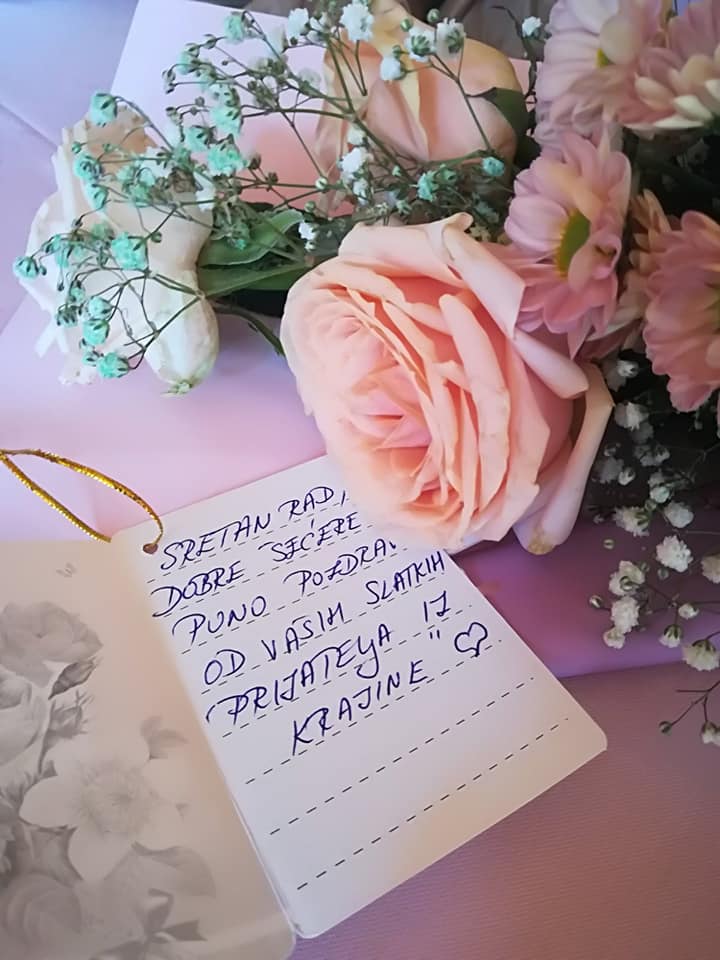 SRETAN RAD,
DOBRE ŠEĆERE
PUNO POZDRAV
OD VAŠIH SLATKIH
PRIJATELJA IZ
KRAJINE " ♡